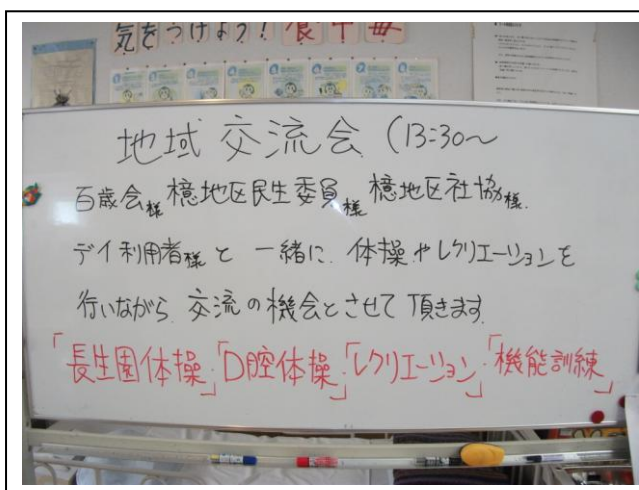 気をつけよう！食中毒
地域交流会（13:30～
百歳会様 檍地区民生委員様 檍地区社協様
デイ利用者様と一緒に、体操やレクリエーションを
行いながら、交流の機会とさせて頂きます
「長生園体操」「口腔体操」「レクリエーション」「機能訓練」